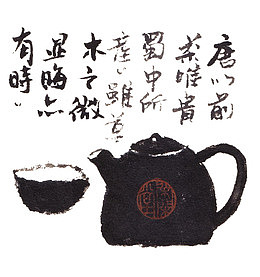 唐以前
茶唯貴
蜀中所
產雖草
木之微
显晦亦
有時